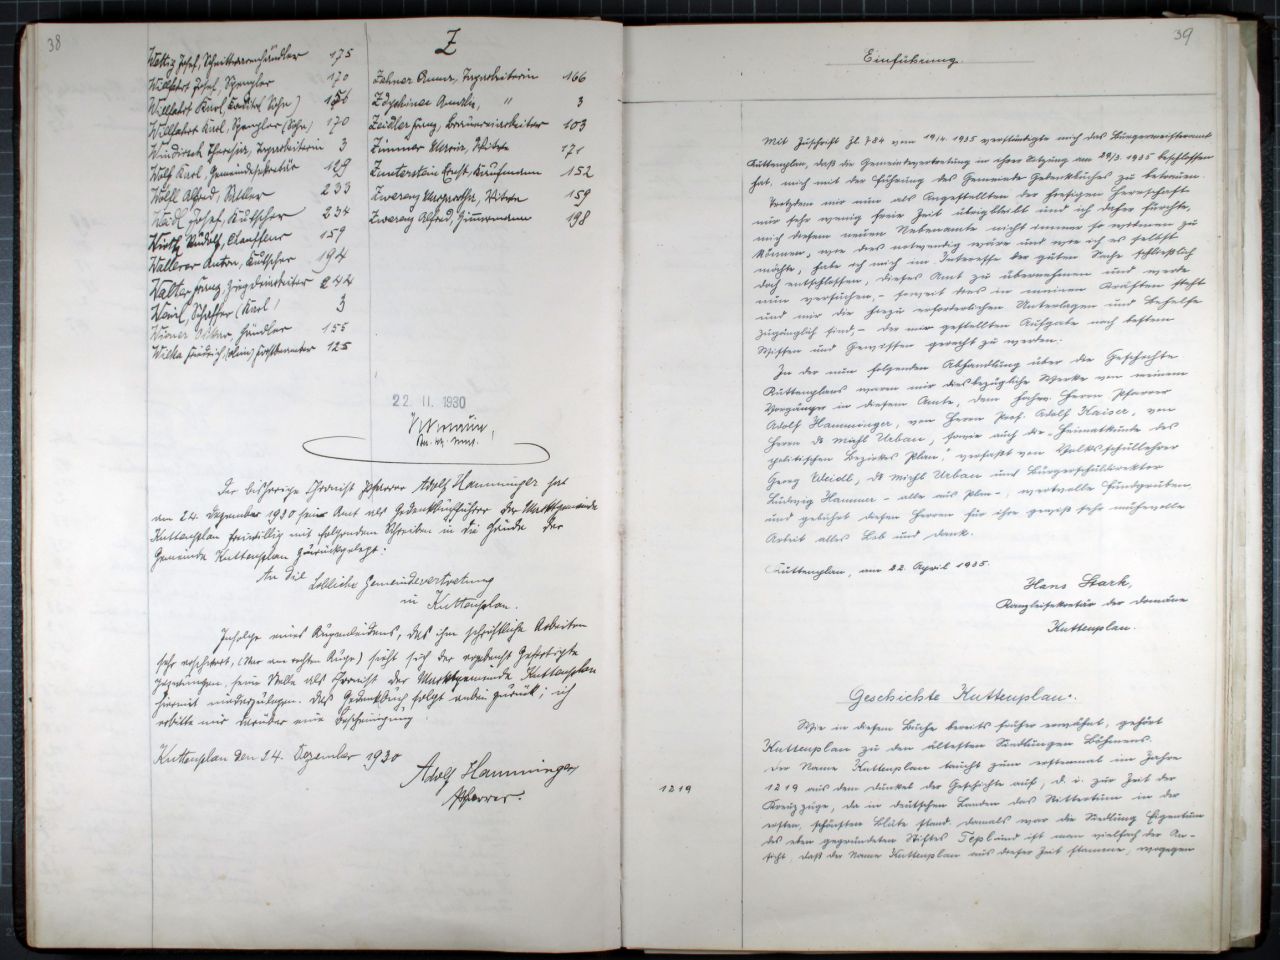 38
Josef, Schnittwarenhändler 175
Willfahrt Josef, Spengler 170
Willfahrt Karl,
Willfahrt Karl, Spengler (Sohn) 170
Theresia, Tagarbeiterin 3
Wolf Karl, Gemeindesekretär 169
Wölfl Alfred, 233
Josef, Kutscher 234
Wirth Rudolf, Chauffeur 159
Wallerer Anton, Kutscher 194
Walter Franz Ziegeleiarbeiter 242
Schaffer (Karl) 3
Wiener Händler 155
Wilka Friedrich, Forstbeamter 125
Z
Zehner Anna, Tagarbeiterin 166
Amalie, " 3
Zeidler Franz, Brauereiarbeiter 103
Zimmer Maria, Witwe 171
Zinterstein Ernst, Kaufmann 152
Zwerenz Margaretha, Witwe 159
Zwerenz Alfred, Zimmermann 198
22 II. 1930
Der bisherige Chronist Pfarrer Adolf Hamminger hat
am 24. Dezember 1930 sein Amt als Gedenkbuchführer der Marktgemeinde
Kuttenplan freiwillig mit folgendem Schreiben in die Hände der
Gemeinde Kuttenplan zurückgelegt:
An die
Löbliche Gemeindevertretung
in Kuttenplan.
Infolge eines Augenleidens, das ihm schriftliche Arbeiten
sehr erschwert, (Star am rechten Auge) sieht sich der ergebenst Gefertigte
gezwungen, seine Stelle als Chronist der Marktgemeinde Kuttenplan
hiermit niederzulegen. Das Gedenkbuch folgt anbei zurück; ich
erbitte mir darüber eine Bescheinigung.
Kuttenplan den 24. Dezember 1930
Adolf Hamminger
Pfarrer.
39
Einführung.
Mit Zuschrift Zl. 784 vom 19/4. 1935 verständigte mich das Bürgermeisteramt
Kuttenplan, daß die Gemeindevertretung in ihrer Sitzung am 29/3. 1935 beschlossen
hat, mich mit der Führung des Gemeinde Gedenkbuches zu betrauen.
Trotzdem mir nun als Angestellten der hiesigen Herrschaft
nur sehr wenig freie Zeit übrigbleibt und ich daher fürchte,
mich diesem neuen Nebenamte nicht immer so widmen zu
können, wie das notwendig wäre und wie ich es selbst
möchte, habe ich mich im Interesse der guten Sache schließlich
doch entschlossen, dieses Amt zu übernehmen und werde
nun versuchen, - soweit dies in meinen Kräften steht
und mir die hiezu erforderlichen Unterlagen und Behelfe
zugänglich sind, - der mir gestellten Aufgabe nach bestem
Wissen und Gewissen gerecht zu werden.
In der nun folgenden Abhandlung über die Geschichte
Kuttenplans waren mir diesbezügliche Werke von meinem
Vorgänger in diesem Amte, dem hochw. Herrn Pfarrer
Adolf Hamminger, von Herrn Prof. Adolf Kaiser, von
Herrn Dr Michl Urban, sowie auch die „Heimatkunde des
politischen Bezirkes Plan", verfaßt von Volksschullehrer
Georg Weidl, Dr Michl Urban und Bürgerschuldirektor
Ludwig Hammer - alle aus Plan -, wertvolle Fundgruben
und gebührt diesen Herren für ihre gewiß sehr mühevolle
Arbeit alles Lob und Dank.
Kuttenplan, am 22. April 1935.
Hans Stark,
Kanzleisekretär der Domäne
Kuttenplan.
Geschichte Kuttenplan.
Wie in diesem Buche bereits früher erwähnt, gehört
Kuttenplan zu den ältesten Siedlungen Böhmens.
Der Name Kuttenplan taucht zum erstenmal im Jahre
1219 1219 aus dem Dunkel der Geschichte auf, d. i. zur Zeit der
Kreuzzüge, da in deutschen Landen das Rittertum in der
ersten, schönsten Blüte stand. Damals war die Siedlung Eigentum
des eben gegründeten Stiftes Tepl und ist man vielfach der An-
sicht, daß der Name Kuttenplan aus dieser Zeit stamme, wogegen